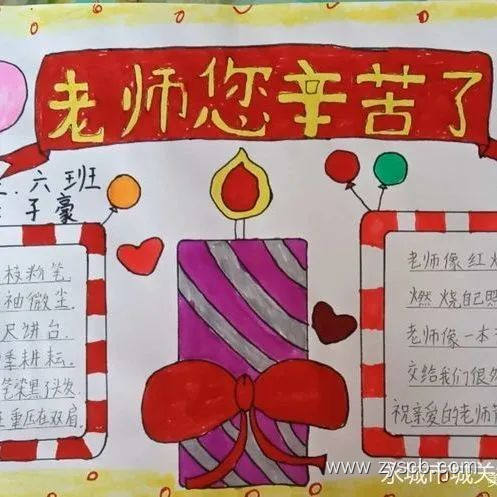 老师您辛苦了
六班
子豪
枝粉笔
袖微尘
尺饼台
季耕耘
笔染黑了头发
重压在双肩
老师像红
燃烧自己照
老师像一本
交给我们很多
祝亲爱的老师
www.zyscb.com
永城市城关